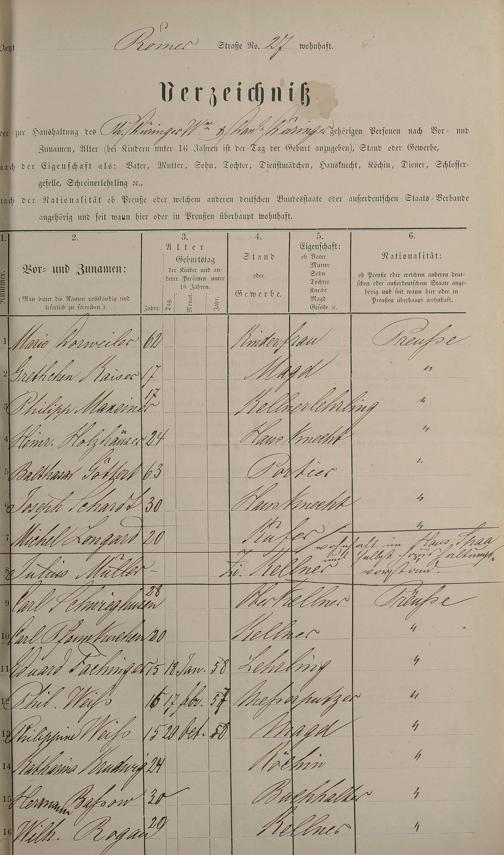 Jetzt Römer Straße No. 27 wohnhaft.
Verzeichniß
der zur Haushaltung des Thüringer Wwe & gehörigen Personen nach Vor- und
Zunamen, Alter (bei Kindern unter 16 Jahren ist der Tag der Geburt anzugeben), Stand oder Gewerbe,
nach der Eigenschaft als: Vater, Mutter, Sohn, Tochter, Dienstmädchen, Hausknecht, Köchin, Diener, Schlosser-
geselle, Schreinerlehrling ꝛc.,
nach der Nationalität ob Preuße oder welchen anderen deutschen Bundesstaate oder außerdeutschen Staats-Verbande
angehörig und seit wann hier oder in Preußen überhaupt wohnhaft.
1. 2. 3. 4. 5. 6.
Nummer.
Vor- und Zunamen:
(Man bittet die Namen vollständig und
leserlich zu schreiben.)
Alter
Geburtstag
der Kinder und an-
derer Personen unter
16 Jahren.
Jahre. Tag. Monat. Jahr.
Stand
oder
Gewerbe.
Eigenschaft:
ob Vater
Mutter
Sohn
Tochter
Knecht
Magd
Geselle ꝛc.
Nationalität:
ob Preuße oder welchen anderen deut-
schen oder außerdeutschen Staate ange-
hörig und seit wann hier oder in
Preußen überhaupt wohnhaft.
1 Marie Dorweiler 62 Kinderfrau Preuße
2 Grethchen Kaiser 17 Magd "
3 Philipp Maxeiner 17 Kellnerlehrling "
4 Heinr. Holzhäuser 24 Hausknecht "
5 Balthasar Götzert 63 Portier "
6 Joseph Schardt 30 Hausknecht "
7 Michel Longard 20 Küfer "
wohnhaft im Haus,
8 Julius Müller Kellner
9 Carl Schwieghusen 28 Oberkellner Preuße
10 Carl 20 Kellner "
11 Eduard Fachinger 15 18 Jan. 58 Lehrling "
12 Phil. Weiß 15 17 57 Messerputzer "
13 Philippine Weiß 15 20 Oct. 58 Magd "
14 Katharina 24 Köchin "
15 Hermann Bassow 20 Buchhalter "
16 Wilh. Rogau 29 Kellner "